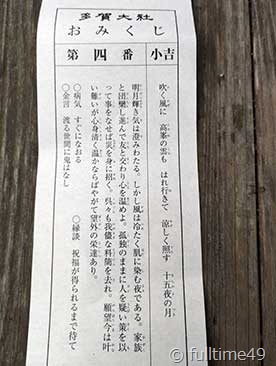 多賀大社
おみくじ
第四番 小吉
吹く風に 高峯の雲も はれ行きて 涼しく照す 十五夜の月
明月輝き気は澄みわたる。しかし風は冷たく肌に染む夜である。家族
と団欒し進んで友と交わり心を温めよ。孤独のままに人を疑い策を以
って事をなせば災を身に招く。呉々も我儘な料簡を去れ。願望今は叶
い難いが心身清く温かならばやがて望外の栄達あり。
◎病気 すぐになおる ◎縁談 祝福が得られるまで待て
◎金言 渡る世間に鬼はなし
© fulltime49